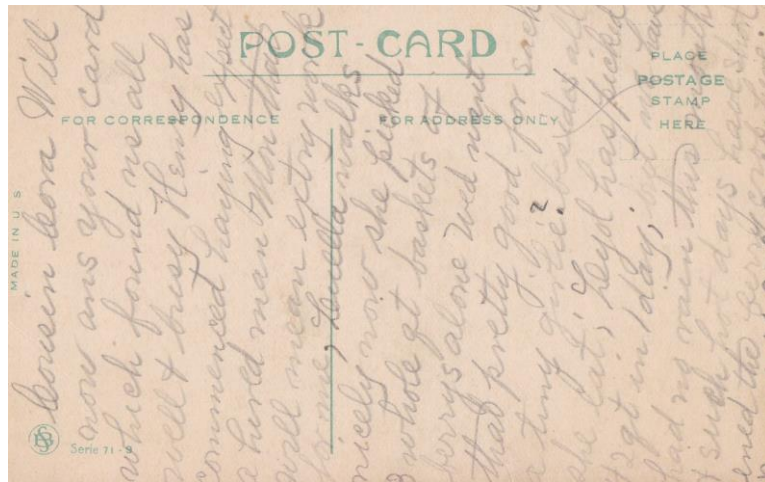 POST-CARD
FOR CORRESPONDENCE
FOR ADDRESS ONLY
PLACE
POSTAGE
STAMP
HERE
MADE IN U S
Serie 71 - 9
Cousin Cora Will
now ans your card
which found us all
well & busy Henry has
commenced haying expect
a hired man Mon that
will mean extry work
for me, Luella walks
nicely now she picked
3 whole qt baskets of
berrys alone Wed want
that pretty good for such
a tiny girlie? besides all
she eat, has picked
qt in 1 day, but we have
had no rain this month
& such hot days have short
ened the berry crop